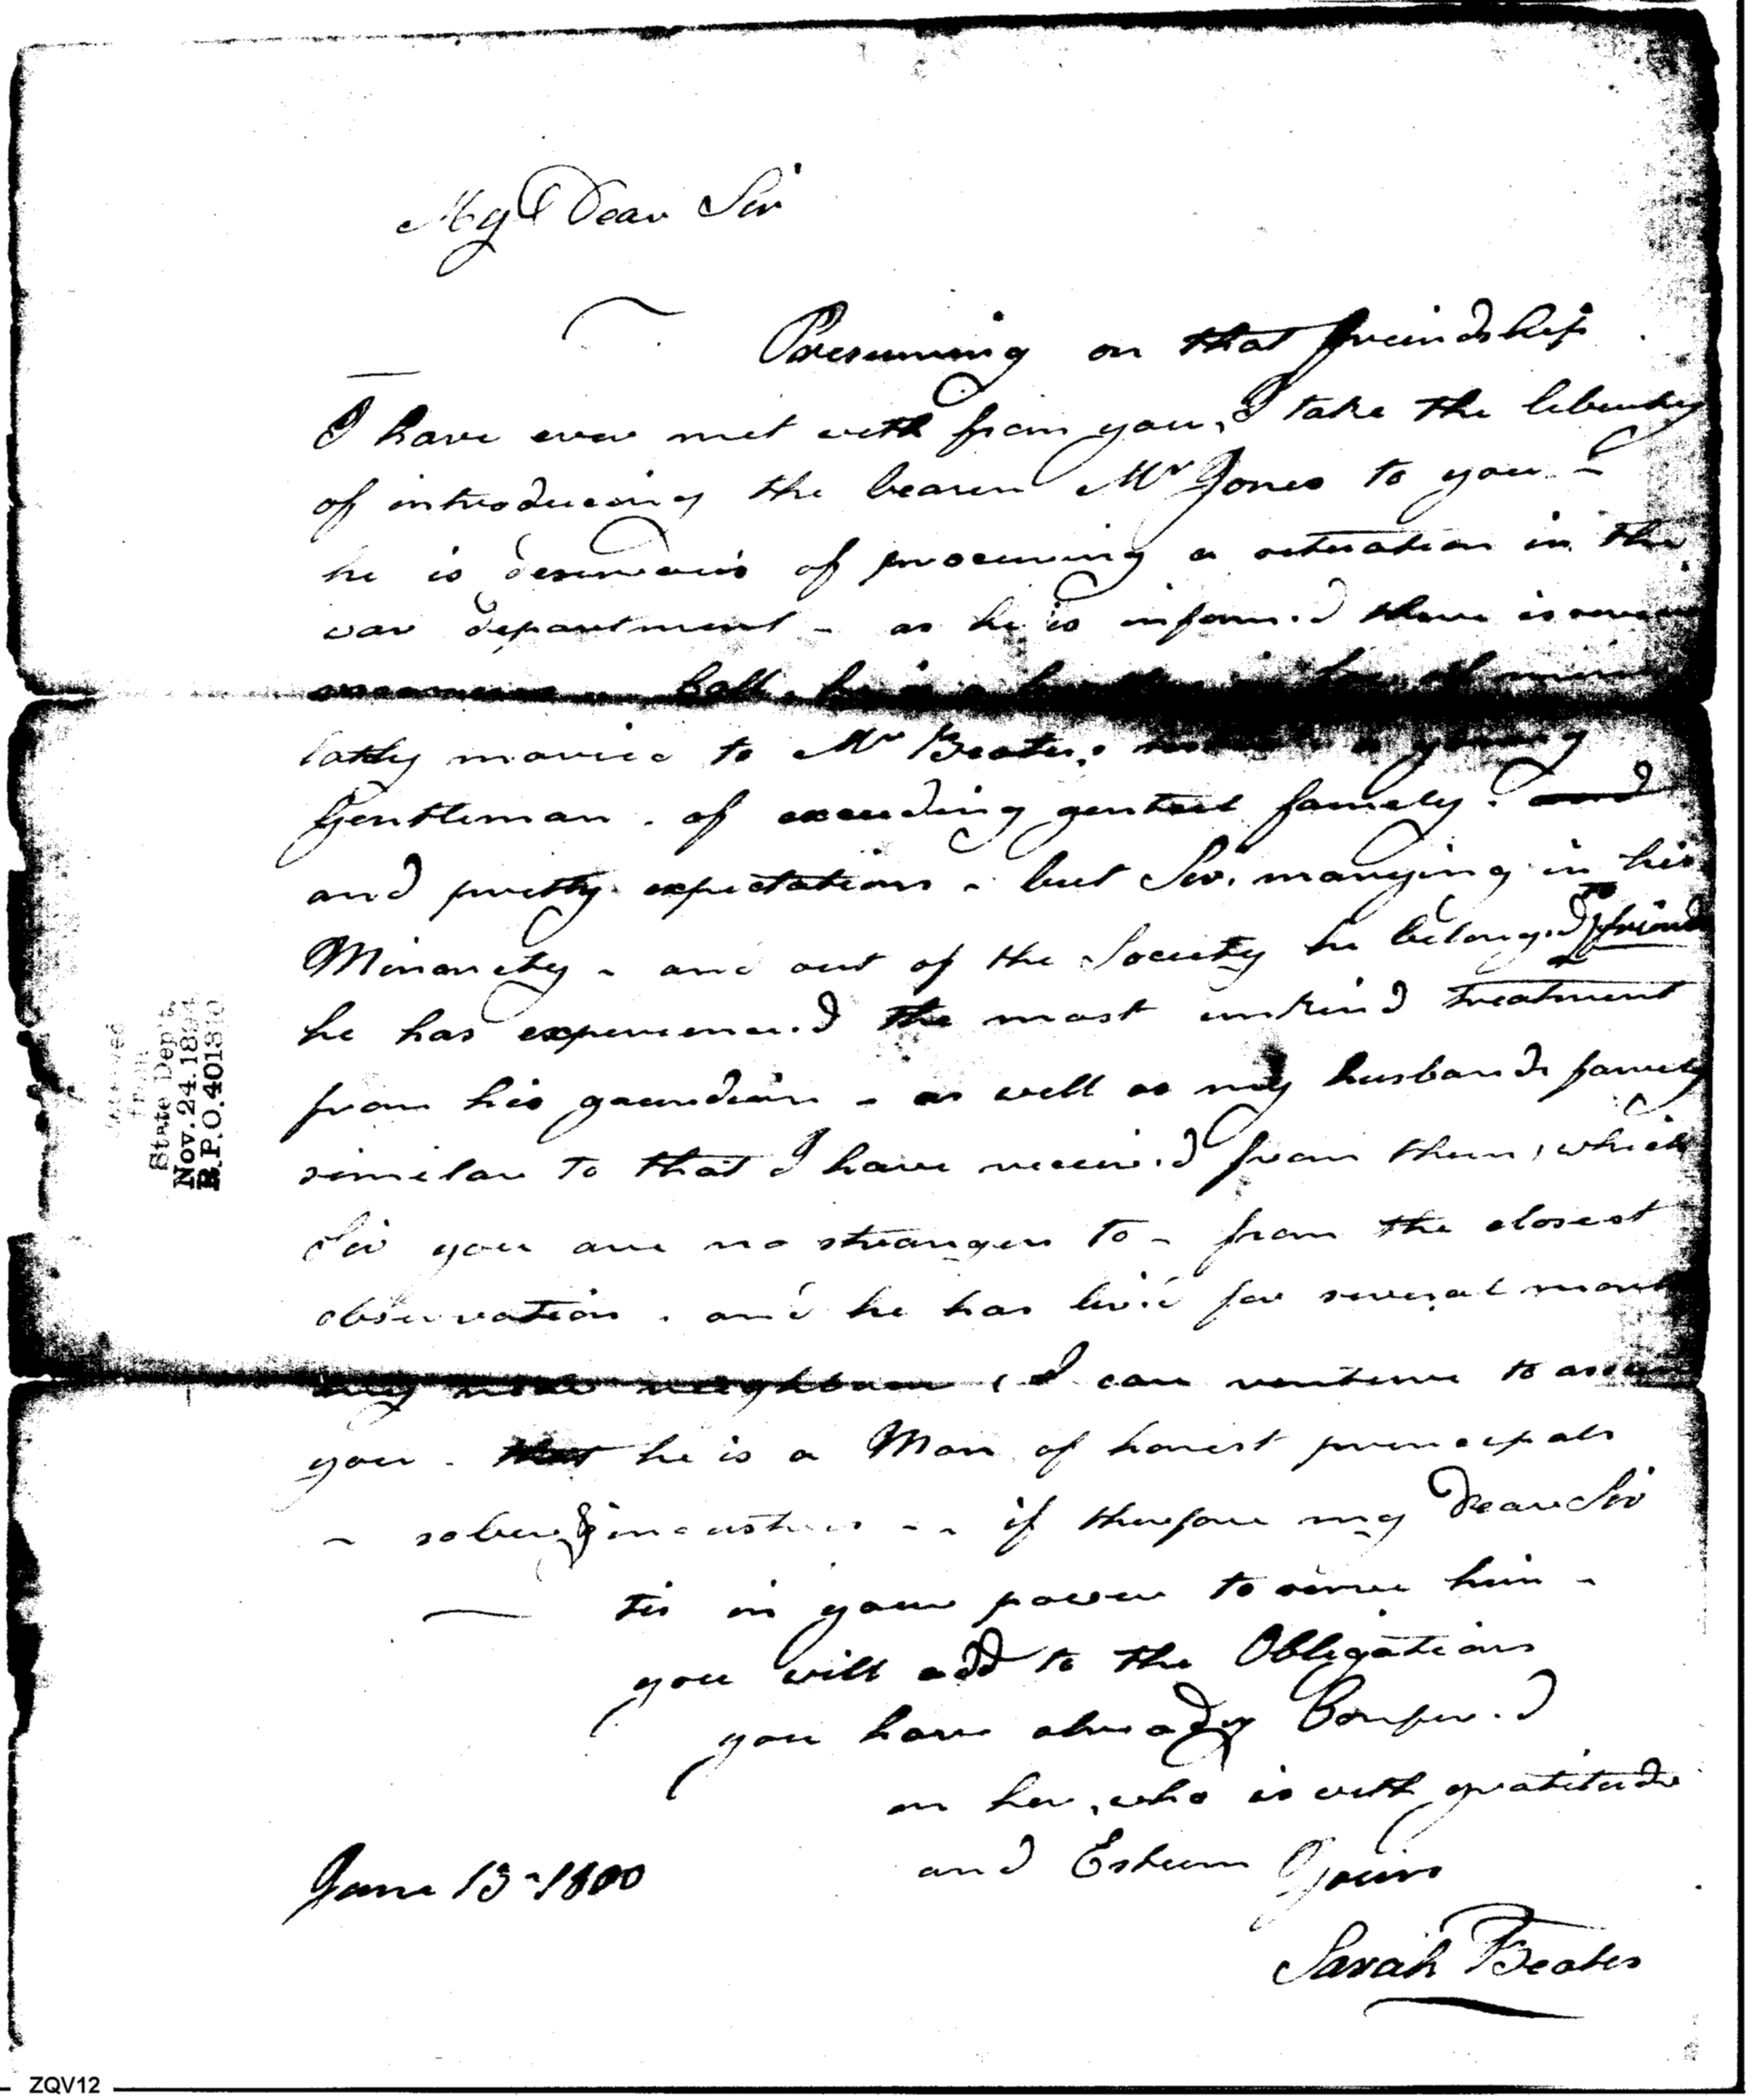 My Dear Sir
Presuming on that freindship
I have ever met with from you, I take the liberty
of introducing the bearer Mr Jones to you -
he is desireous of procuring a situation in the
war department - as he is inform.d there is
lately married to Mr Beates, a young
Gentleman . of exceeding genteel famely . and
and pretty expectations - but Sir, marrying in his
Minorety - and out of the Society he belong.d to friends
he has experienced the most unkind treatment
from his gaurdian - as well as my husbands famely
similar to that I have receiv.d from them, which
Sir you are no stranger to - from the closest
observation . and he has liv.d for several
my neighbour , I can venture to
you - that he is a Man of honest principals
- sober & industrous - - if therefore my Dear Sir
tis in your power to serve him -
you will add to the Obligations
you have already Confer.d
on her, who is with gratitude
and Esteem Yours
June 13 - 1800
Sarah Beates
State Dep't.
Nov. 24. 1894
R.P.O. 401310
ZQV12